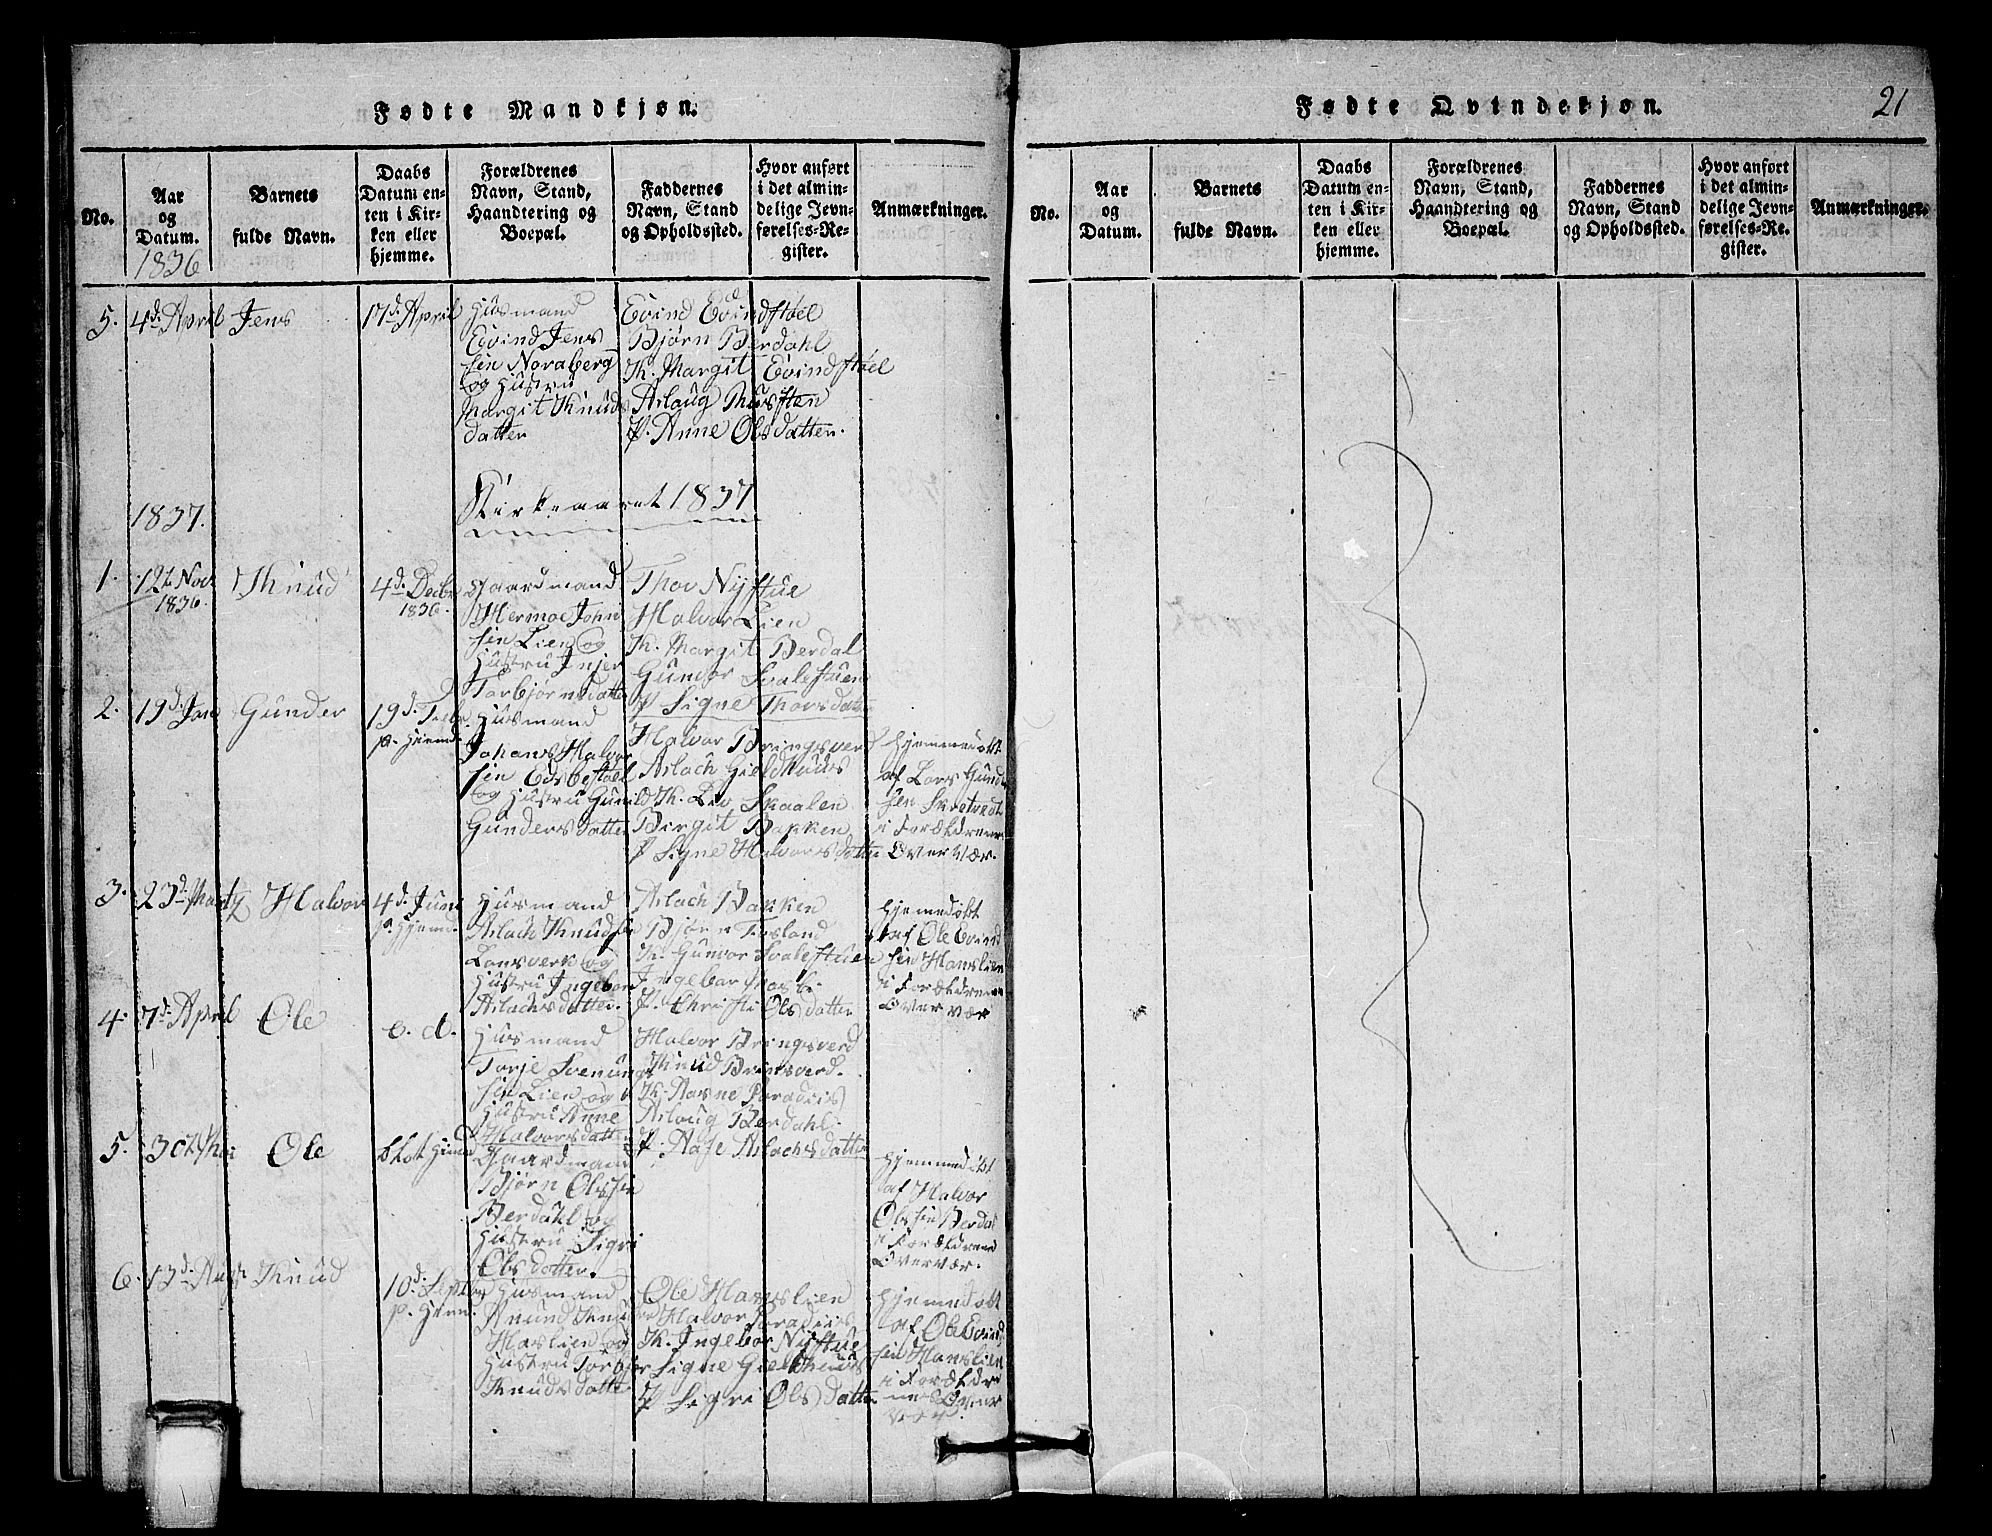 Fødte Mandkjøn.
No.
Aar
og
Datum.
1836
Barnets
fulde Navn.
Daabs
Datum en-
ten i Kir-
ken eller
hjemme.
Forældrenes
Navn, Stand,
Haandtering og
Boepæl.
Faddernes
Navn, Stand
og Opholdssted.
Hvor anført
i det almin-
delige Jevn-
førelses-Re-
gister.
Anmærkninger.
5.
4d. April
Jens
17d. April
Husmand
Eivind Jens
sen Noraberg
og Hustru
Margit Knuds
datter
Evind Evindstøel
Bjørn Berdahl
K. Margit Eivindstøel
Aslaug
P. Anne Olsdatter.
Kirkeaaret 1837
1837.
1.
12t. Nov.
1836.
Knud
4d. Decbr
1836.
Gaardmand
Hermoe John
sen Lien og
Hustru Injer
Torbjørnsdatter
Thor Nystue
Halvor Lien
K. Margit Berdal
Gunvor Svalestuen
P Signe Thorsdatter
2.
19d. Jan
Gunder
19d. Febr
p. Hiemd.
Husmand
Johans Halvor
sen Edsbestøel
og Hustru Gunild
Gundersdatter
Halvor Bringsverd
Aslach Gieldhuus
K. Liv Skaalen
Birgit Bakken
P Signe Halvorsdatter
Hjemmedøbt
af Lars Gunder
sen Skretvedt
i Forældrenes
Overvær.
3.
23d. Martz
Halvor
4d. Juni
p. Hjemd.
Husmand
Aslach Knudsen
Lonsverk og
Hustru Ingebor
Aslachsdatter.
Aslach Bakken
Bjørn
K. Gunvor Svalestuen
Ingebor
P. Christi Olsdatter
Hjemedøbt
af Ole Evind
sen Hanslien
i Forældrenes
Overvær
4.
7d. April
Ole
e. d.
Husmand
Torje Svenung
sen Lien og
Hustru Anne
Halvorsdatter
Halvor Bringsverd
Knud Bringsverd.
K. Aasne Paradiis
Aslaug Berdahl.
P. Aase Aslachsdatter
5.
30t.
Ole
blot Hiemd
Gaardmand
Bjørn Olssen
Berdahl og
Hustru Sigri
Olsdatter.
Hjemmedøbt
af Halvor
Olssen Berdal
i Forældrenes
Overvær.
6.
13d. Aug.
Knud
10d. Septbr
p. Hiem.
Husmand
Anund Knudsen
Haslien og
Hustru Torbjør
Knudsdatter
Ole Hanslien
Halvor Paradiis
K. Ingebor Nystue
Signe Gieldhuus
P Sigri Olsdatter
Hjemedøbt
af Ole Evind
sen Hanslien
i Forældre
nes Over
vær.
Fødte Qvindekjøn.
21
No.
Aar
og
Datum.
Barnets
fulde Navn.
Daabs
Datum en-
ten i Kir-
ken eller
hjemme.
Forældrenes
Navn, Stand,
Haandtering og
Boepæl.
Faddernes
Navn, Stand
og Opholdssted.
Hvor anført
i det almin-
delige Jevn-
førelses-Re-
gister.
Anmærkninger.